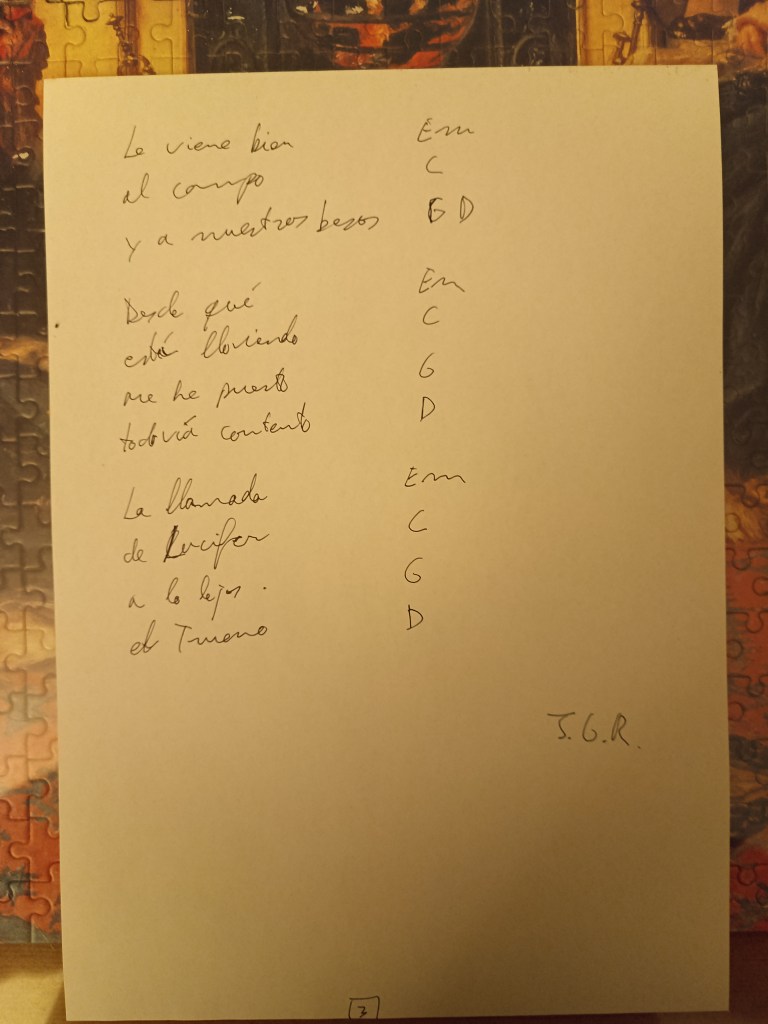 Le viene bien Em
al campo C
y a nuestros besos G D
Desde qué Em
está lloviendo C
me he puesto G
todavía contento D
La llamada Em
de Lucifer C
a lo lejos. G
el Trueno D
J.G.R.
3